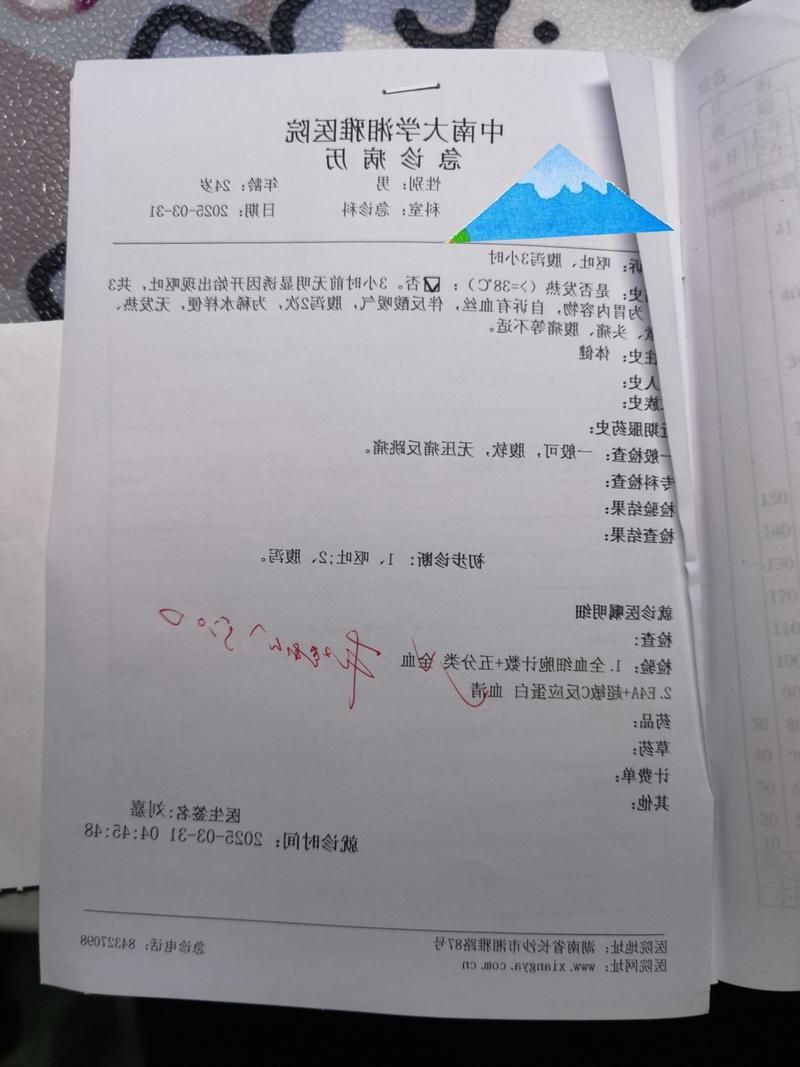 中南大学湘雅医院
急诊病历
性别：男 年龄：24岁
科室：急诊科 日期：2025-03-31
诉：呕吐、腹泻3小时
史：是否发热（>=38℃）：☑否。3小时前无明显诱因开始出现呕吐，共3
为胃内容物，自诉有血丝，伴反酸嗳气，腹泻2次，为稀水样便，无发热、
头、头痛、腹痛等不适。
往史：体健
人史：
族史：
近期服药史：
一般检查：一般可，腹软，无压痛反跳痛。
专科检查：
检验结果：
检查结果：
初步诊断：1、呕吐;2、腹泻。
就诊医嘱明细
检查：
检验：1.全血细胞计数+五分类 全血
2.E4A+超敏C反应蛋白 血清
药品：
草药：
计费单：
其他：
医生签名:刘嘉
就诊时间：2025-03-31 04:45:48
医院地址：湖南省长沙市湘雅路87号 急诊电话：84327098
医院网址：www.xiangya.com.cn
姓名
150
140
130
120
110
100
90
50 80
40 70
30 60
20 50
10